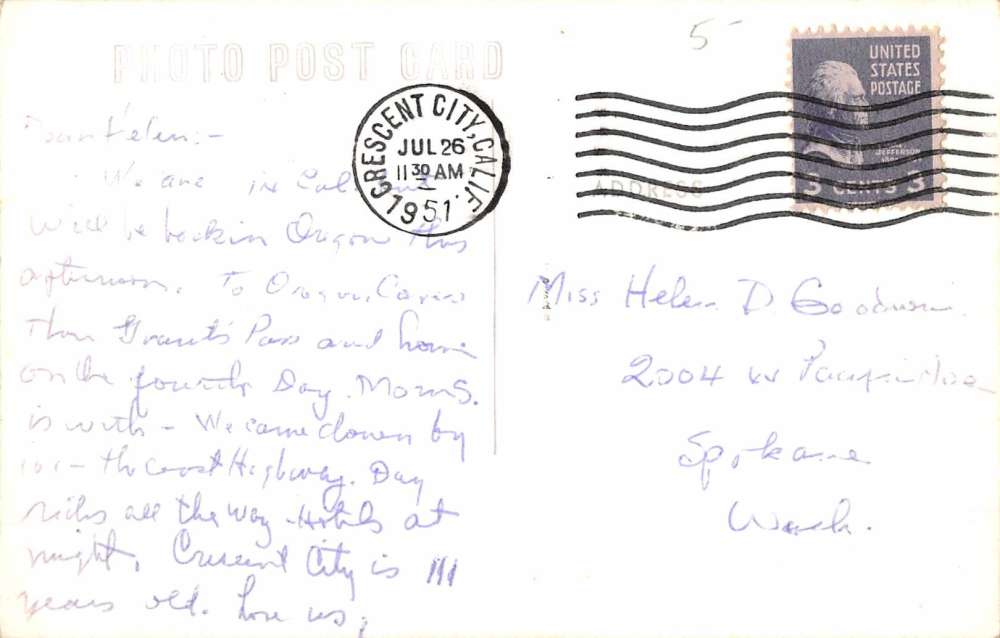 5
PHOTO POST CARD
UNITED
STATES
POSTAGE
JEFFERSON
3 CENTS 3
CRESCENT CITY, CALIF.
JUL 26
11 30 AM
1951
ADDRESS
Dear Helen:-
We are in
Will be back in Oregon this
afternoon. To Oregon Caves
then Grants Pass and home
on the fourth Day. Mom S.
is with - We came down by
101 - the coast Highway. Day
rides all the way - Hotels at
night. Crescent City is 111
years old. Love us,
Miss Helen D. Goodwin
2004 W
Spokane
Wash.